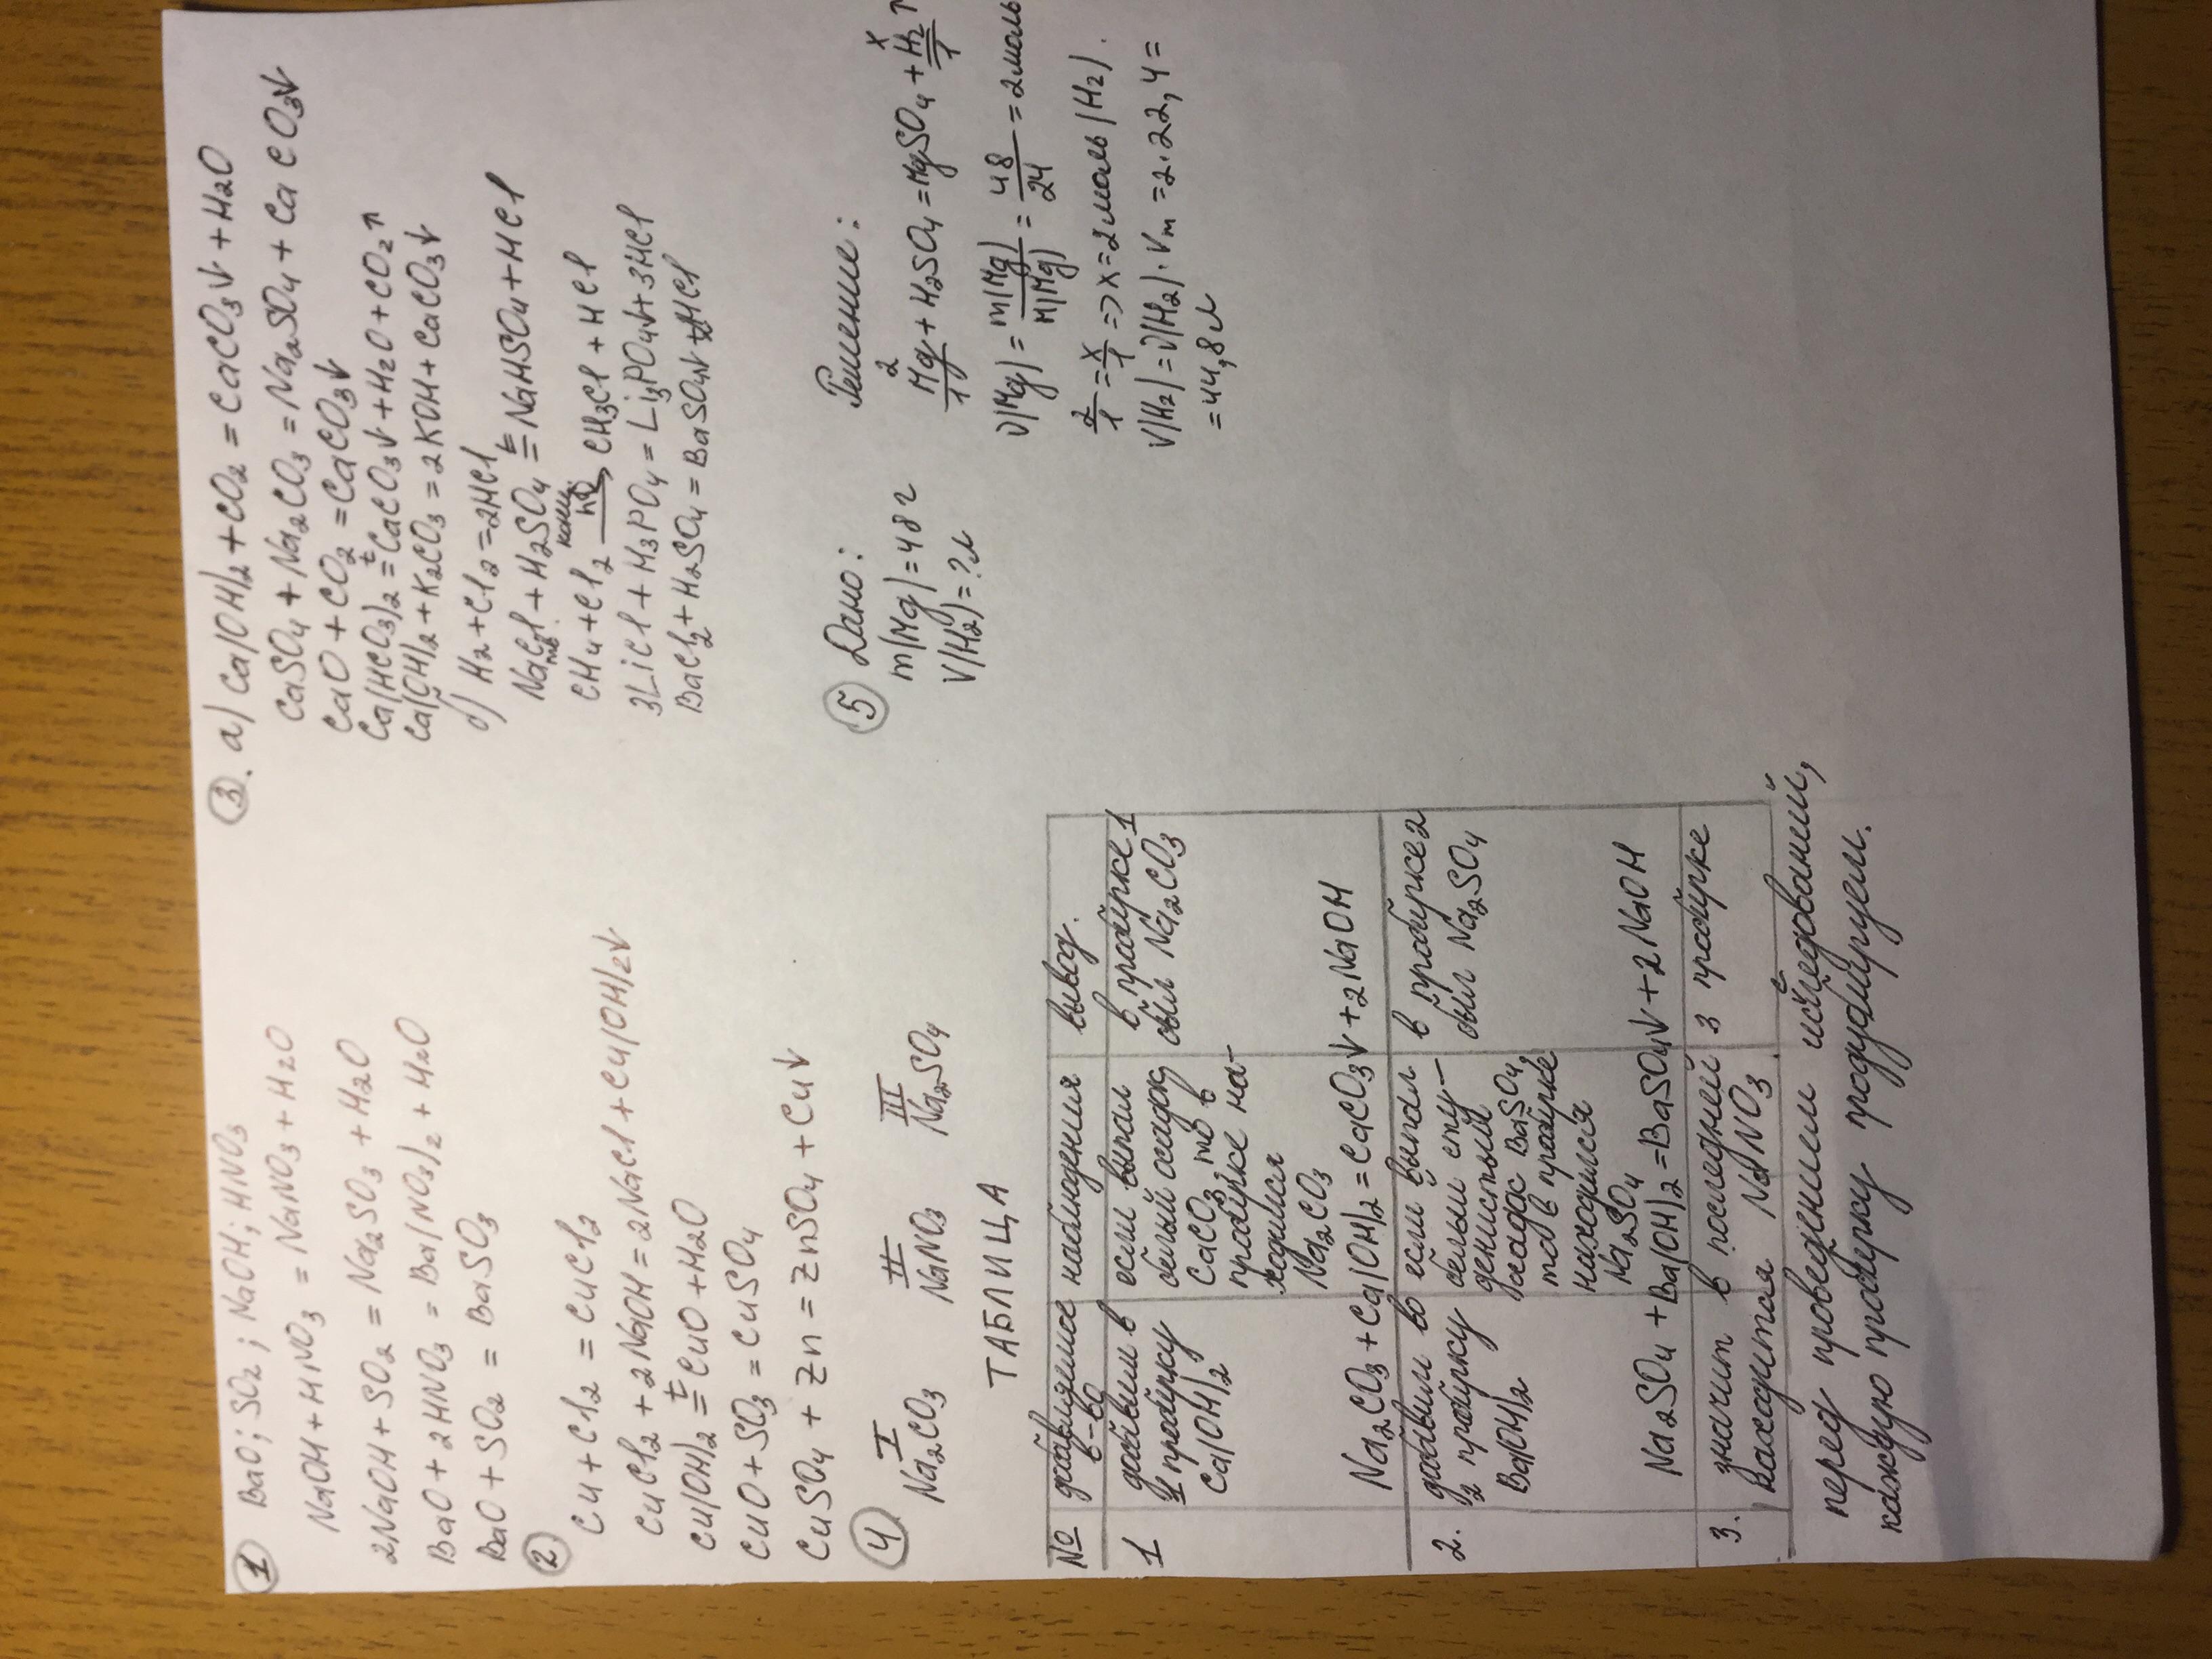 1 BaO; SO2; NaOH; HNO3
NaOH + HNO3 = NaNO3 + H2O
2NaOH + SO2 = Na2SO3 + H2O
BaO + 2HNO3 = Ba(NO3)2 + H2O
BaO + SO2 = BaSO3
2
Cu + Cl2 = CuCl2
CuCl2 + 2NaOH = 2NaCl + Cu(OH)2↓
Cu(OH)2 =t CuO + H2O
CuO + SO3 = CuSO4
CuSO4 + Zn = ZnSO4 + Cu↓
4 I II III
Na2CO3 NaNO3 Na2SO4
ТАБЛИЦА
№ добавляемое в-во наблюдения вывод.
1 добавим в I пробирку Ca(OH)2
если выпал белый осадок CaCO3, то в пробирке находился Na2CO3
в пробирке 1 был Na2CO3
Na2CO3 + Ca(OH)2 = CaCO3↓ + 2NaOH
2. добавим во 2 пробирку Ba(OH)2
если выпал белый сту-
денистый осадок BaSO4, то в пробирке находился Na2SO4
в пробирке 2 был Na2SO4
Na2SO4 + Ba(OH)2 = BaSO4↓ + 2NaOH
3. значит в последней 3 пробирке
находится NaNO3.
перед проведением исследований,
каждую пробирку продублируем.
3. а) Ca(OH)2 + CO2 = CaCO3↓ + H2O
CaSO4 + Na2CO3 = Na2SO4 + CaCO3↓
CaO + CO2 = CaCO3↓
Ca(HCO3)2 =t CaCO3↓ + H2O + CO2↑
Ca(OH)2 + K2CO3 = 2KOH + CaCO3↓
б) H2 + Cl2 = 2HCl
NaClтв. + H2SO4 конц. =t NaHSO4 + HCl
CH4 + Cl2 →hν CH3Cl + HCl
3LiCl + H3PO4 = Li3PO4↓ + 3HCl
BaCl2 + H2SO4 = BaSO4↓ + HCl
5 Дано:
m(Mg) = 48 г
V(H2) = ? л
Решение:
2 x
Mg + H2SO4 = MgSO4 + H2↑
1 1
ν(Mg) = m(Mg)/M(Mg) = 48/24 = 2моль
2/1 = x/1 => x = 2 моль (H2).
V(H2) = ν(H2) · Vm = 2 · 22,4 =
= 44,8 л